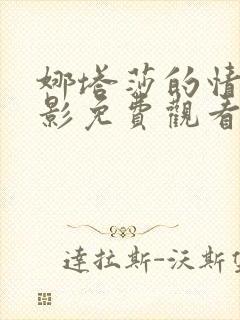 娜塔莎的情
影免費觀看
達拉斯-沃斯堡